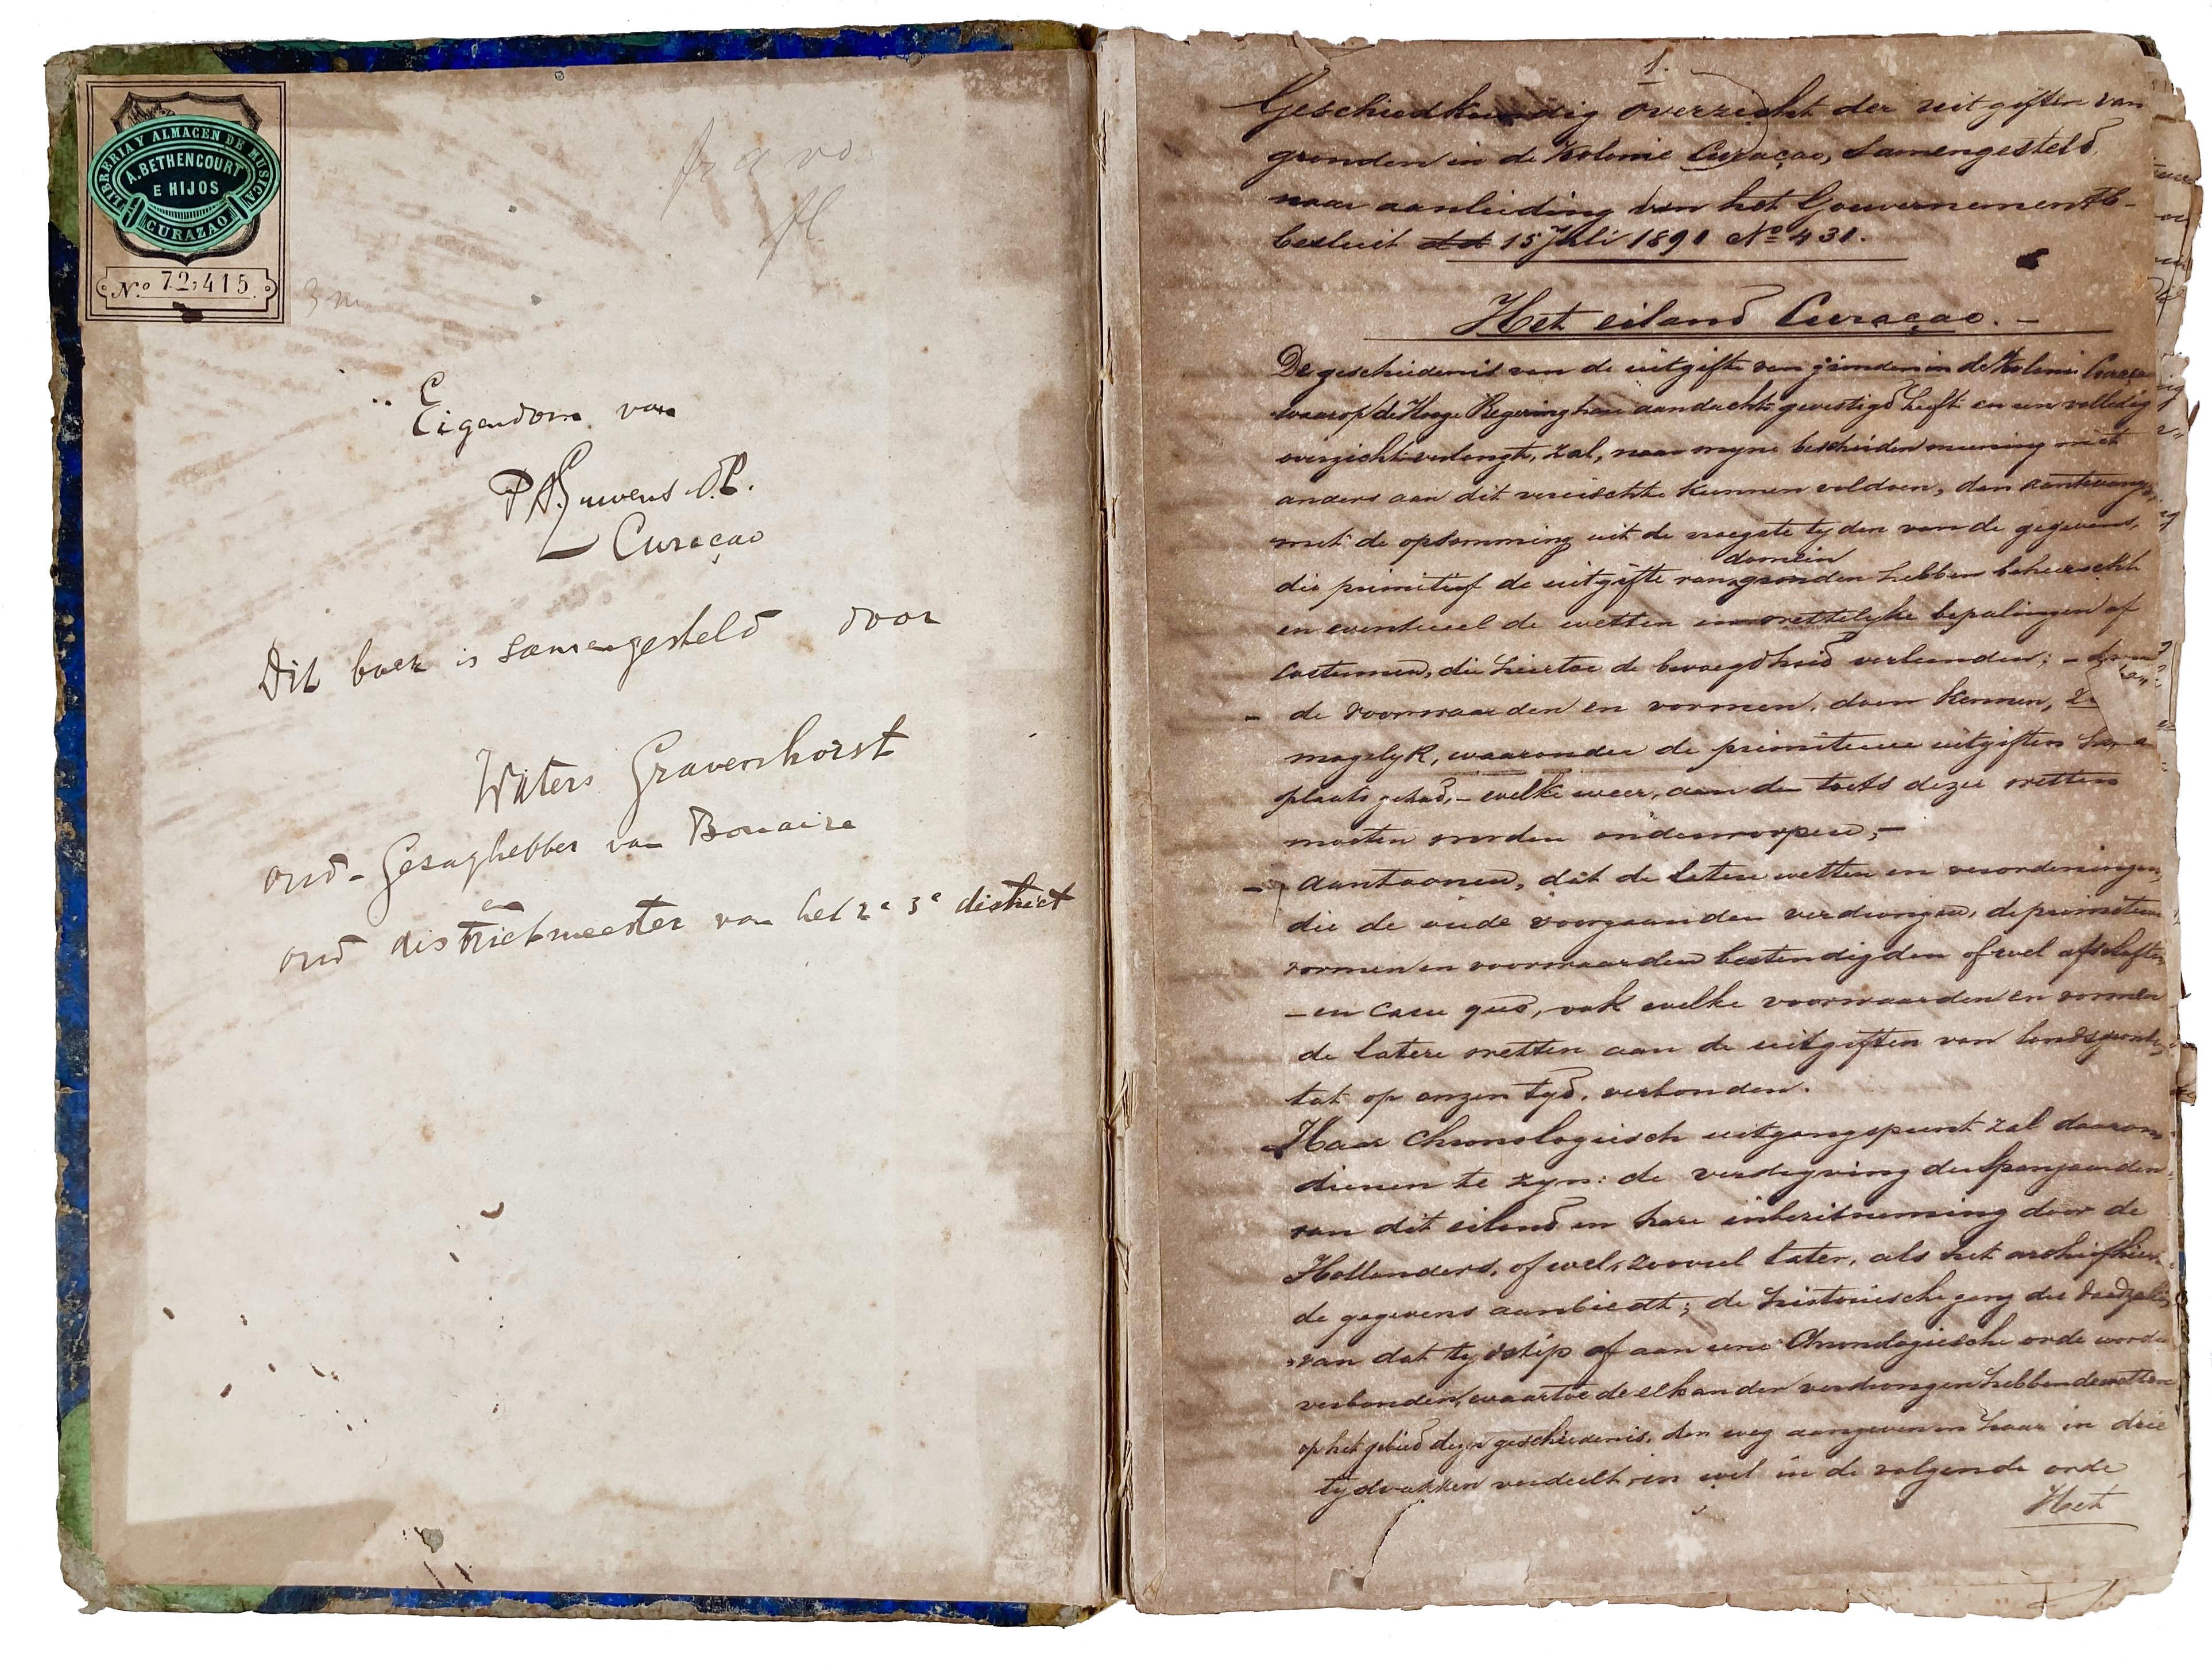 LIBRERIA Y ALMACEN DE MUSICA
A. BETHENCOURT
E HIJOS
CURAZAO
No. 72,415
Eigendom van
Curaçao
Dit boek is samengesteld door
Waters Gravenhorst
oud-Gezaghebber van Bonaire
en
oud districtmeester van het 2e 3e district
1.
Geschiedkundig overzicht der uitgiften van
gronden in de Kolonie Curaçao, Samengesteld
naar aanleiding van het Gouvernements-
besluit dd 15 Juli 1891 No 431.
Het eiland Curaçao. -
De geschiedenis van de uitgifte van gronden in de Kolonie Curaçao
waarop de Hooge Regering hare aandacht gevestigd heeft en een volledig
overzicht verlangt, zal, naar myne bescheiden meening niet
anders aan dit vereischte kunnen voldoen, dan aantevangen
met de opsomming uit de vroegste tyden van de gegevens,
domein
die primitief de uitgifte van gronden hebben beheerscht
en eventueel de wetten en wettelyke bepalingen of
costumen, die hiertoe de bevoegdheid verleenden; -
- de voorwaarden en vormen, doen kennen,
mogelyk, waaronder de primitieve uitgiften
plaats gehad, - welke weer, aan de toets dezer wetten
moeten worden onderworpen, -
- aantoonen, dat de latere wetten en verordeningen,
die de oude voorgaanden verdrongen, de primitieve
vormen en voorwaarden bestendigden ofwel afschaften
- en casu quo, ook welke voorwaarden en vormen
de latere wetten aan de uitgiften van landsgronden
tot op onzen tyd, verbonden.
Haar Chronologisch uitgangspunt zal daarom
dienen te zyn: de verdryving der Spanjaarden
van dit eiland en hare inbezitneming door de
Hollanders, of wel, zooveel later, als het archief hier
de gegevens aanbiedt; de historische gang der
van dat tydstip af aan eene Chronologiesche orde worden
verbonden, waartoe de elkander verdrongen hebbende wetten
op het gebied dezer geschiedenis, den weg aangeven en haar in drie
tydvakken verdeelt en wel in de volgende orde
Het